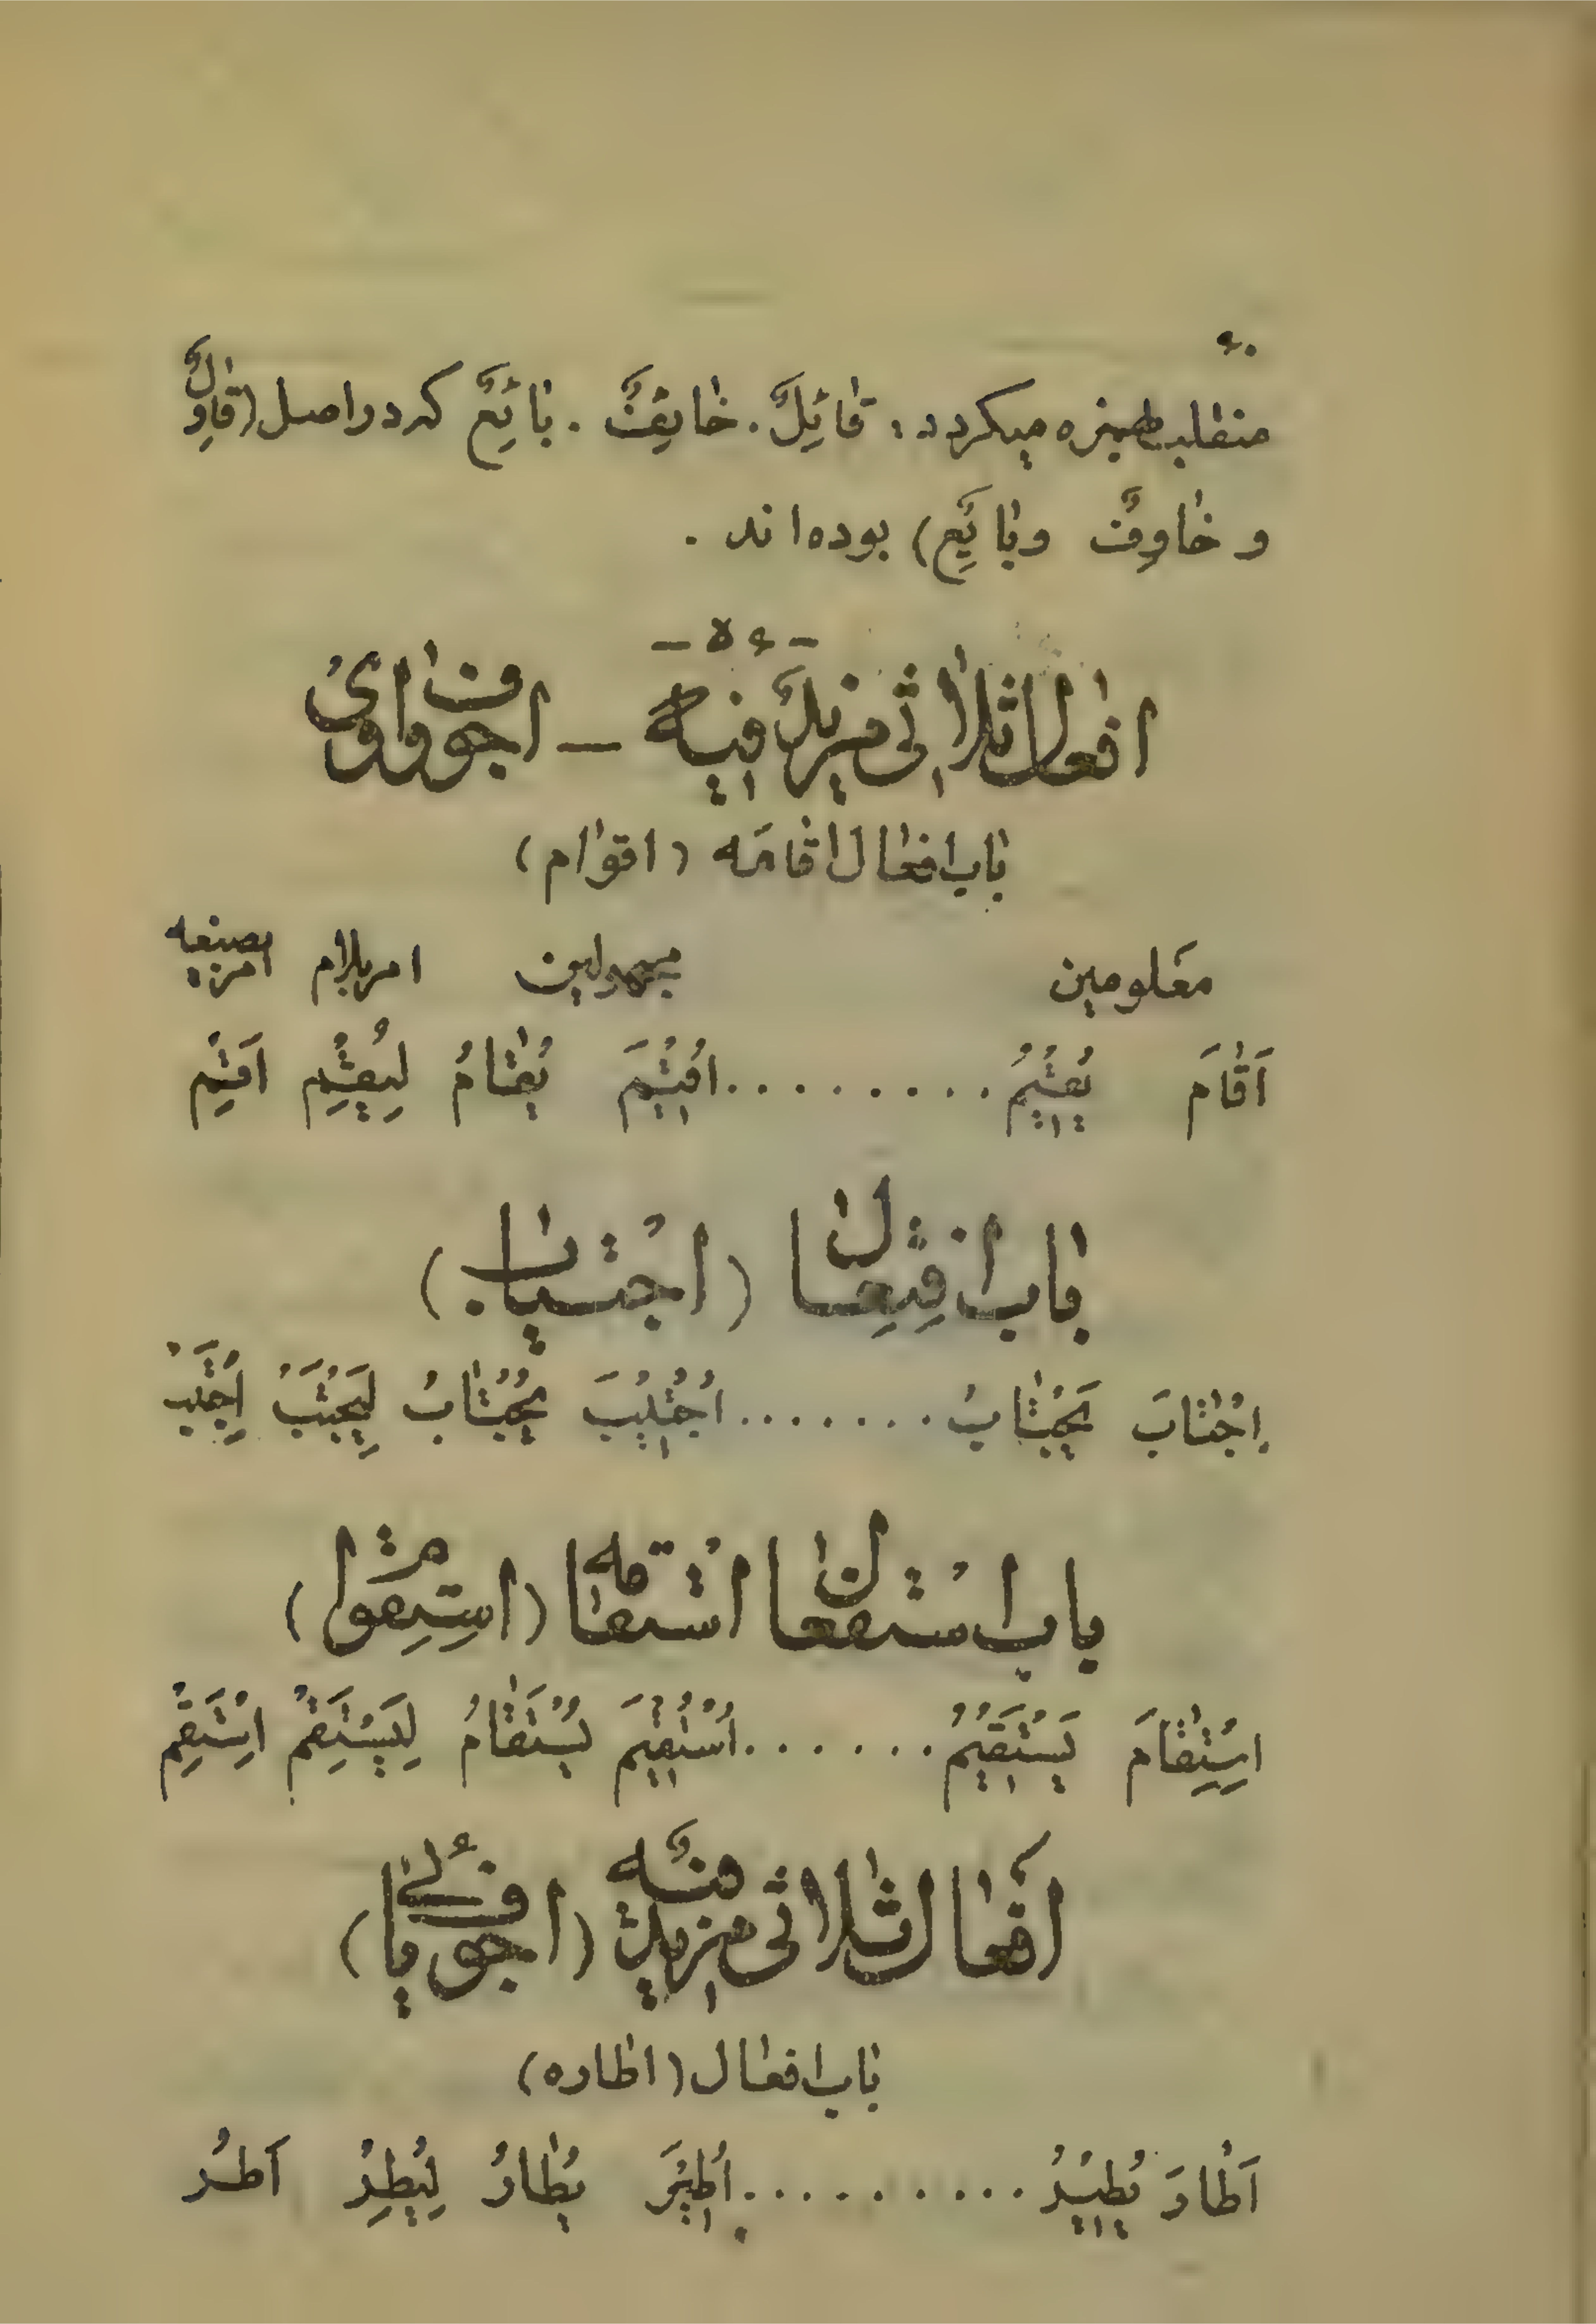 ۴۰
منقلب بهمزه میگردد: قائِلٌ . خائِفٌ . بائِعٌ که در اصل (قاوِلٌ
و خاوِفٌ و بایِعٌ) بوده‌اند .
- ۴۵ -
افعال ثلاثی مزیدٌ فیه – اجوف واوی
باب افعال اقامَه (اقوام)
معلومین مجهولین امر بلام امر بصیغه
اَقامَ یُقیمُ . . . . . . . . . اُقیمَ یُقامُ لِیُقِمْ اَقِمْ
باب افتعال (اجتیاب)
اِجْتابَ یَجْتابُ . . . . . . . اُجْتیبَ یُجْتابُ لِیَجْتَبْ اِجْتَبْ
باب استفعال استقامه (استقوام)
اِسْتِقامَ یَسْتَقیمُ . . . . . . اُسْتُقیمَ یُسْتَقامُ لِیَسْتَقِمْ اِسْتَقِمْ
افعال ثلاثی مزیدٌ فیه (اجوف یائی)
باب افعال (اطاره)
اَطارَ یُطیرُ . . . . . . . . . . اُطیرَ یُطارُ لِیُطِرْ اَطِرْ